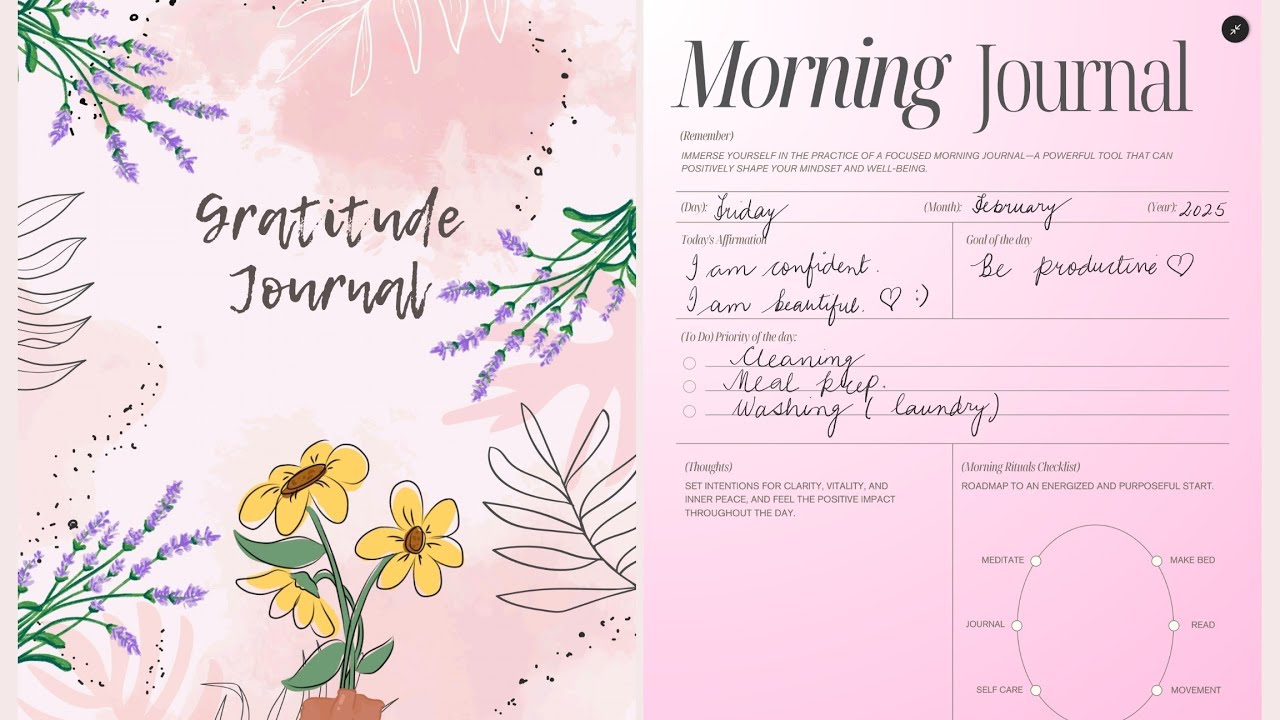 Gratitude
Journal
Morning Journal
(Remember)
IMMERSE YOURSELF IN THE PRACTICE OF A FOCUSED MORNING JOURNAL—A POWERFUL TOOL THAT CAN
POSITIVELY SHAPE YOUR MINDSET AND WELL-BEING.
(Day): Friday (Month): February (Year): 2025
Today's Affirmation
I am confident.
I am beautiful. ♡ :)
Goal of the day
Be productive ♡
(To Do) Priority of the day:
Cleaning
Meal prep.
Washing ( laundry)
(Thoughts)
SET INTENTIONS FOR CLARITY, VITALITY, AND
INNER PEACE, AND FEEL THE POSITIVE IMPACT
THROUGHOUT THE DAY.
(Morning Rituals Checklist)
ROADMAP TO AN ENERGIZED AND PURPOSEFUL START.
MEDITATE MAKE BED
JOURNAL READ
SELF CARE MOVEMENT